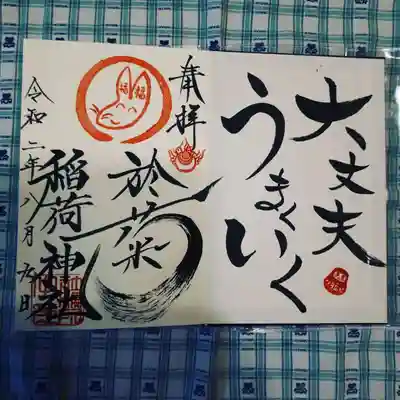 大丈夫
うまくいく
奉拝
於菊
稲荷神社
令和二年八月九日
福福